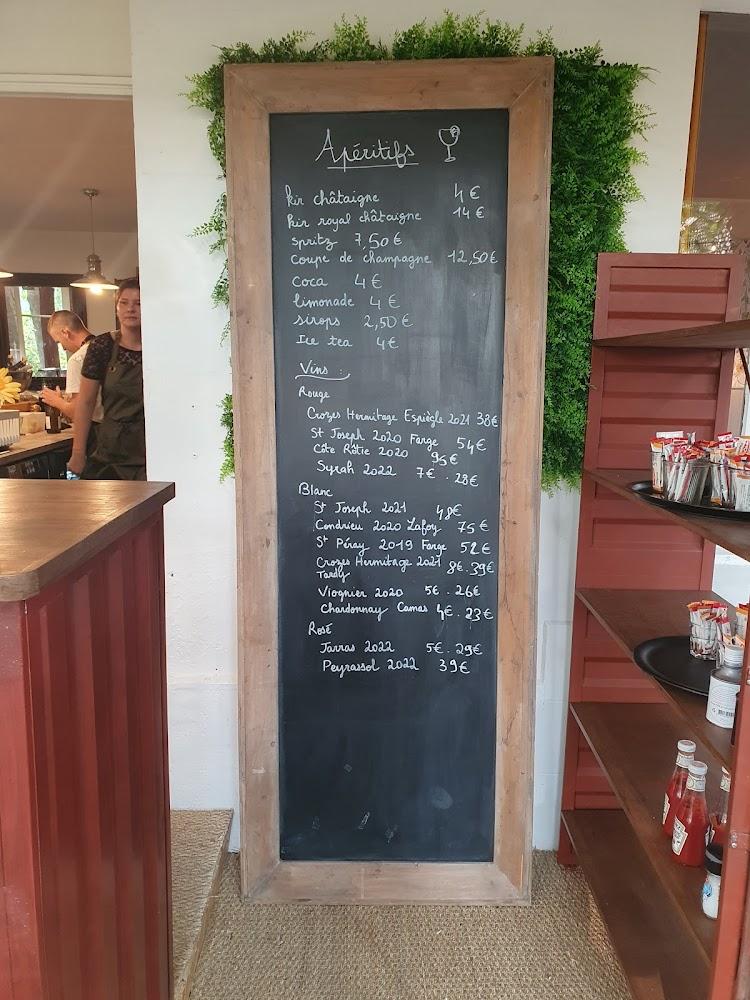 Apéritifs
kir châtaigne 4€
kir royal châtaigne 14€
spritz 7,50€
coupe de champagne 12,50€
coca 4€
limonade 4€
sirops 2,50€
Ice tea 4€
Vins :
Rouge
Crozes Hermitage Espiègle 2021 38€
St Joseph 2020 Farge 54€
Côte Rôtie 2020 95€
Syrah 2022 7€ . 28€
Blanc
St Joseph 2021 48€
Condrieu 2020 Lafoy 75€
St Péray 2019 Farge 52€
Crozes Hermitage 2021 8€ . 39€
Tardy
Viognier 2020 5€ . 26€
Chardonnay Camas 4€ . 23€
Rosé
Tarras 2022 5€ . 29€
Peyrassol 2022 39€